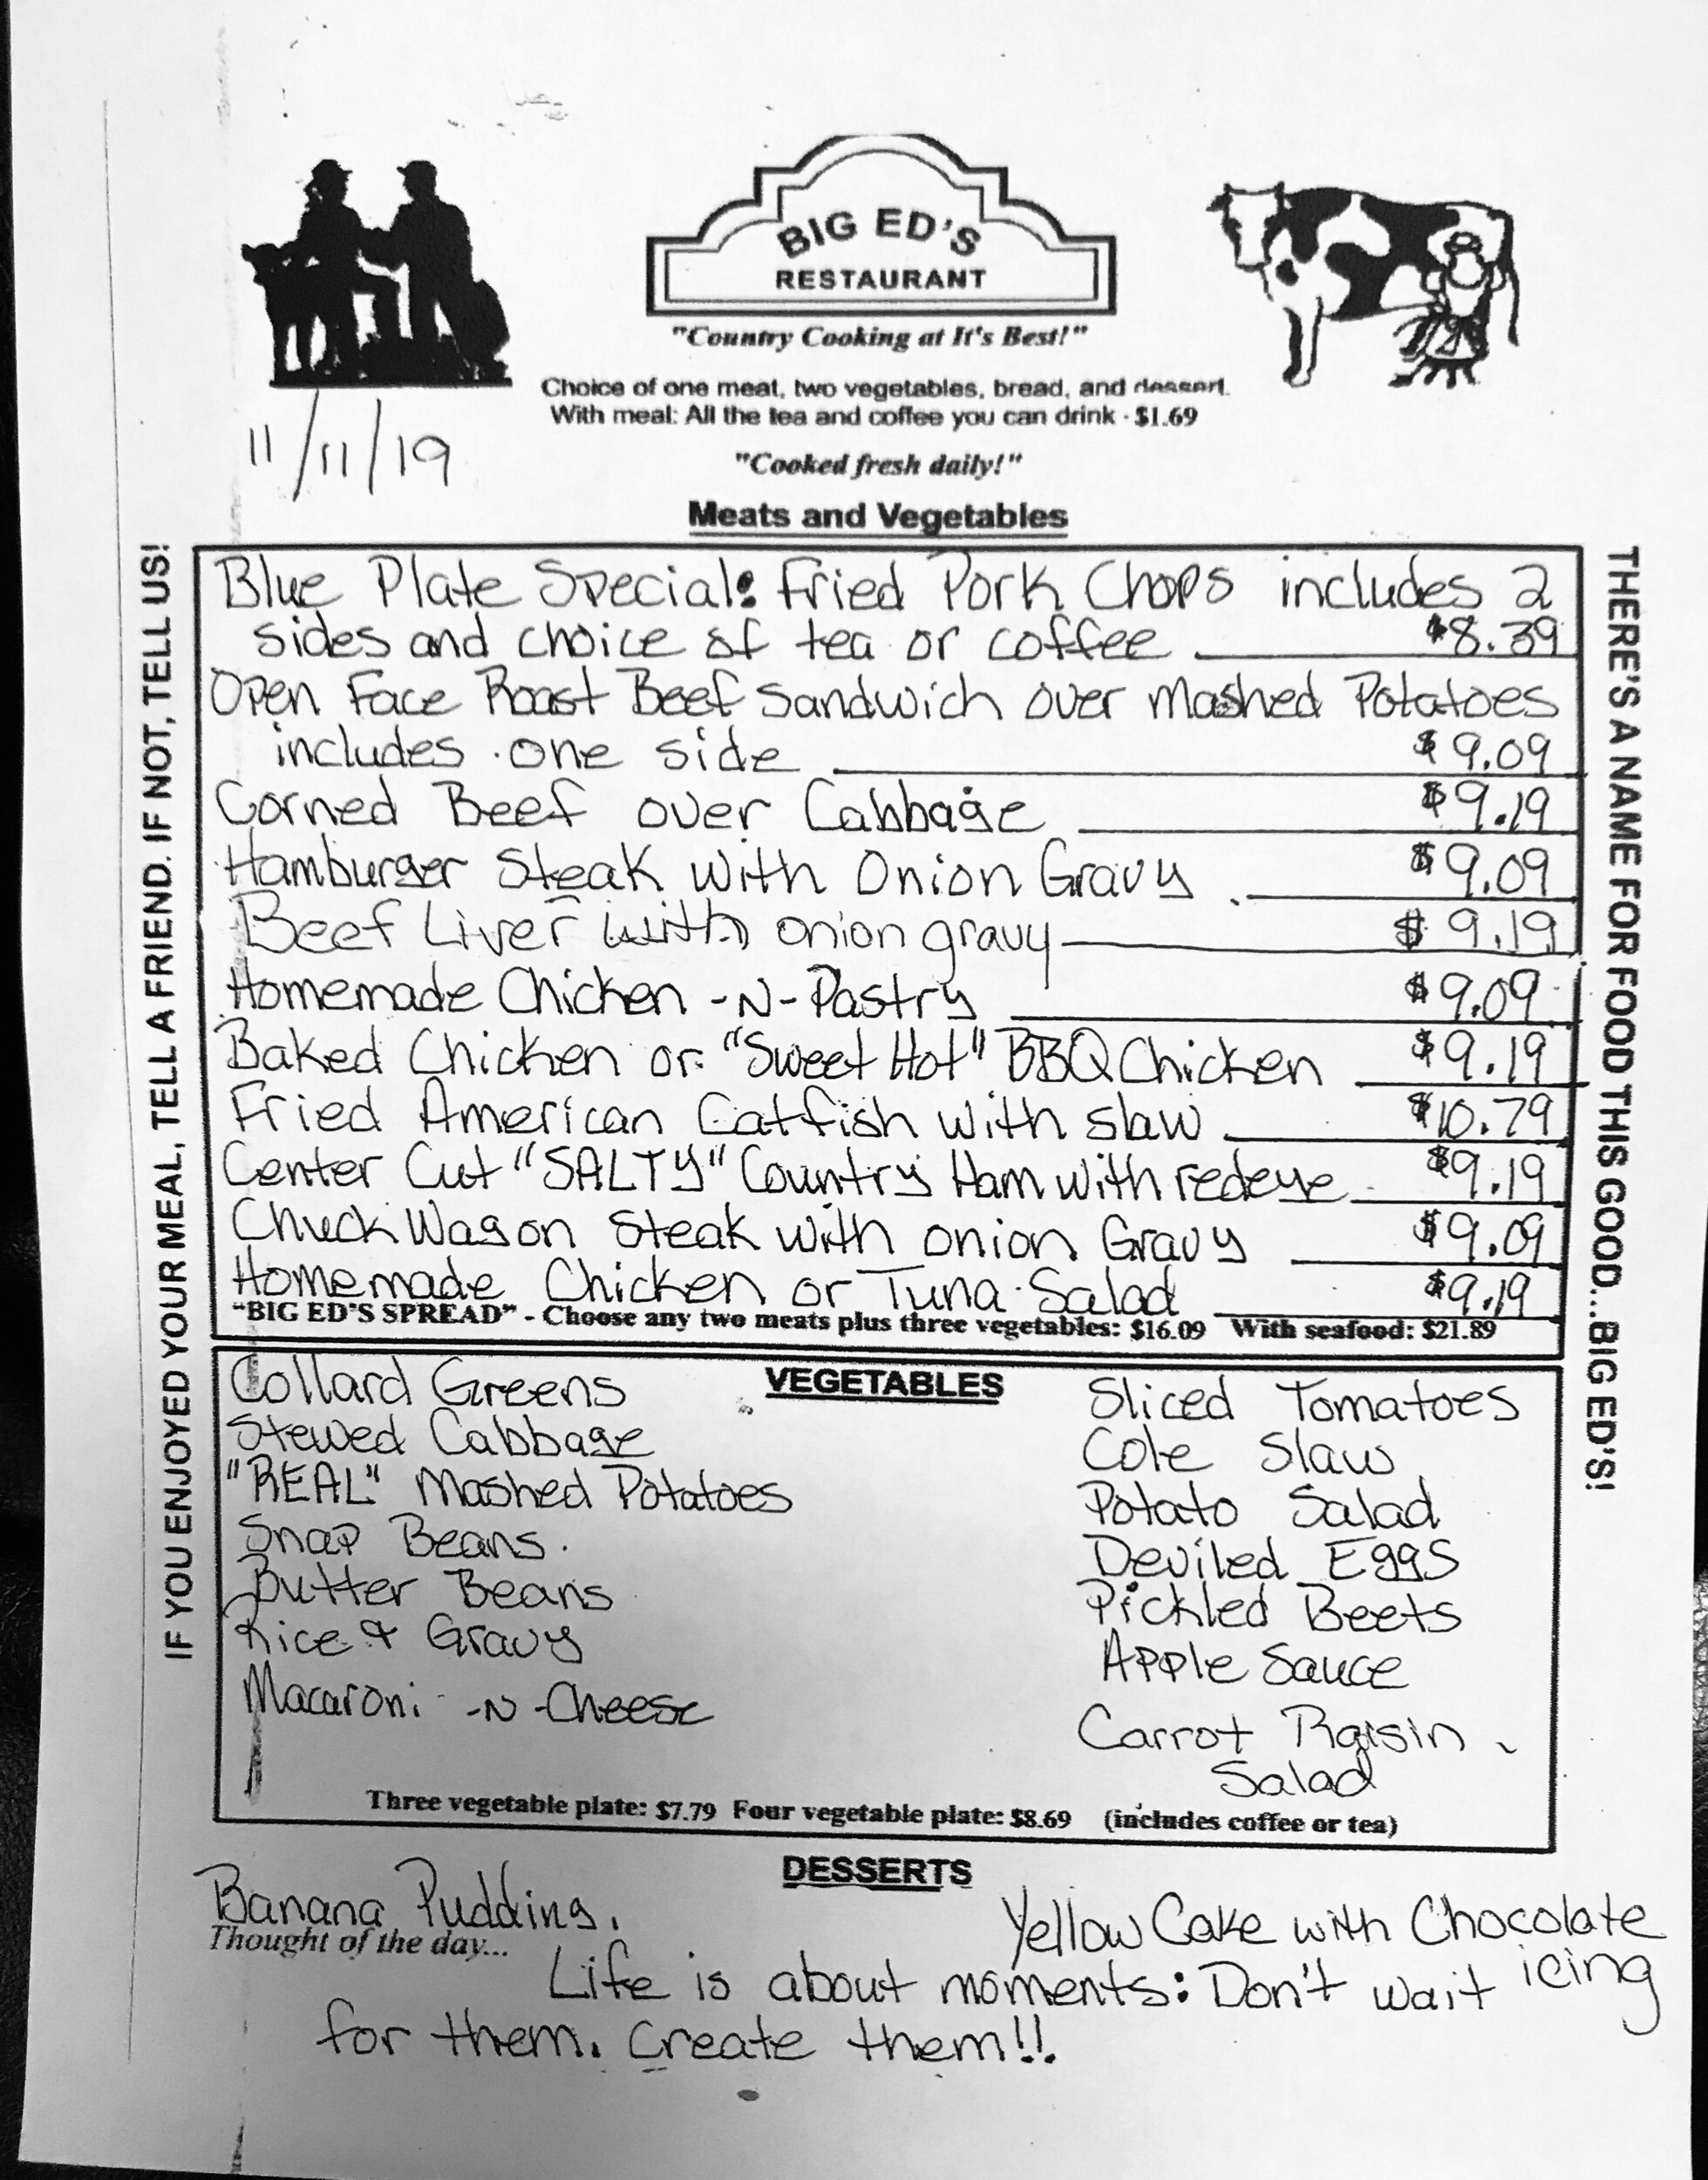 BIG ED'S
RESTAURANT
"Country Cooking at It's Best!"
Choice of one meat, two vegetables, bread, and dessert.
With meal: All the tea and coffee you can drink - $1.69
11/11/19
"Cooked fresh daily!"
Meats and Vegetables
IF YOU ENJOYED YOUR MEAL, TELL A FRIEND. IF NOT, TELL US!
Blue Plate Special: Fried Pork Chops includes 2
sides and choice of tea or coffee $8.39
Open Face Roast Beef Sandwich over Mashed Potatoes
includes one side $9.09
Corned Beef over Cabbage $9.19
Hamburger Steak with Onion Gravy $9.09
Beef Liver with onion gravy $9.19
Homemade Chicken -N- Pastry $9.09
Baked Chicken or "Sweet Hot" BBQ Chicken $9.19
Fried American Catfish with slaw $10.79
Center Cut "SALTY" Country Ham with redeye $9.19
Chuck Wagon Steak with onion Gravy $9.09
Homemade Chicken or Tuna Salad $9.19
"BIG ED'S SPREAD" - Choose any two meats plus three vegetables: $16.09 With seafood: $21.89
THERE'S A NAME FOR FOOD THIS GOOD...BIG ED'S!
VEGETABLES
Collard Greens
Stewed Cabbage
"REAL" Mashed Potatoes
Snap Beans
Butter Beans
Rice & Gravy
Macaroni -N- Cheese
Sliced Tomatoes
Cole Slaw
Potato Salad
Deviled Eggs
Pickled Beets
Apple Sauce
Carrot Raisin
Salad
Three vegetable plate: $7.79 Four vegetable plate: $8.69 (includes coffee or tea)
DESSERTS
Banana Pudding.
Yellow Cake with Chocolate
icing
Thought of the day...
Life is about moments: Don't wait
for them. Create them!!